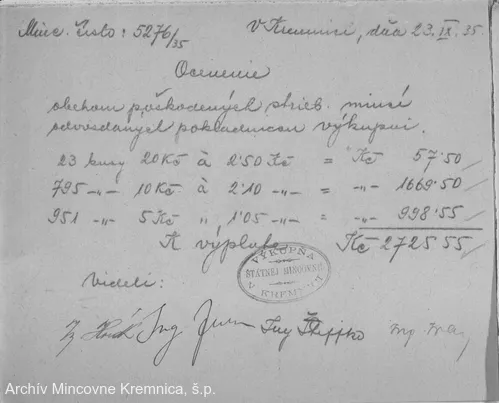 Minc. čislo: 5276/35
V Kremnici, dňa 23.IX.35.
Ocenenie
obehom poškodených strieb. mincí
odovzdaných pokladnicou výkupni.
23 kusy 20 Kč à 2'50 Kč = Kč 57'50
795 -"- 10 Kč à 2'10 -"- = -"- 1669'50
951 -"- 5 Kč " 1'05 -"- = -"- 998'55
K výplate Kč 2725'55
VÝKUPŇA
ŠTÁTNEJ MINCOVNE
V KREMNICI
Videli:
Ing
Archív Mincovne Kremnica, š.p.